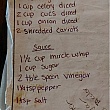 1 cup celery diced
2 cup cukes diced
1 cup onion diced
2 shredded carrots
Sauce
1 1/2 cup miracle whip
1 cup sugar
2 tble spoon vinegar
1/4 tsp pepper
1 tsp salt